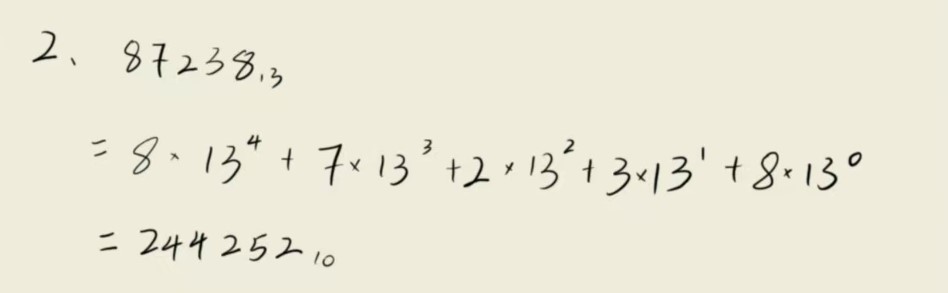 2、 87238₁₃
= 8 × 13⁴ + 7 × 13³ + 2 × 13² + 3 × 13¹ + 8 × 13⁰
= 244252₁₀